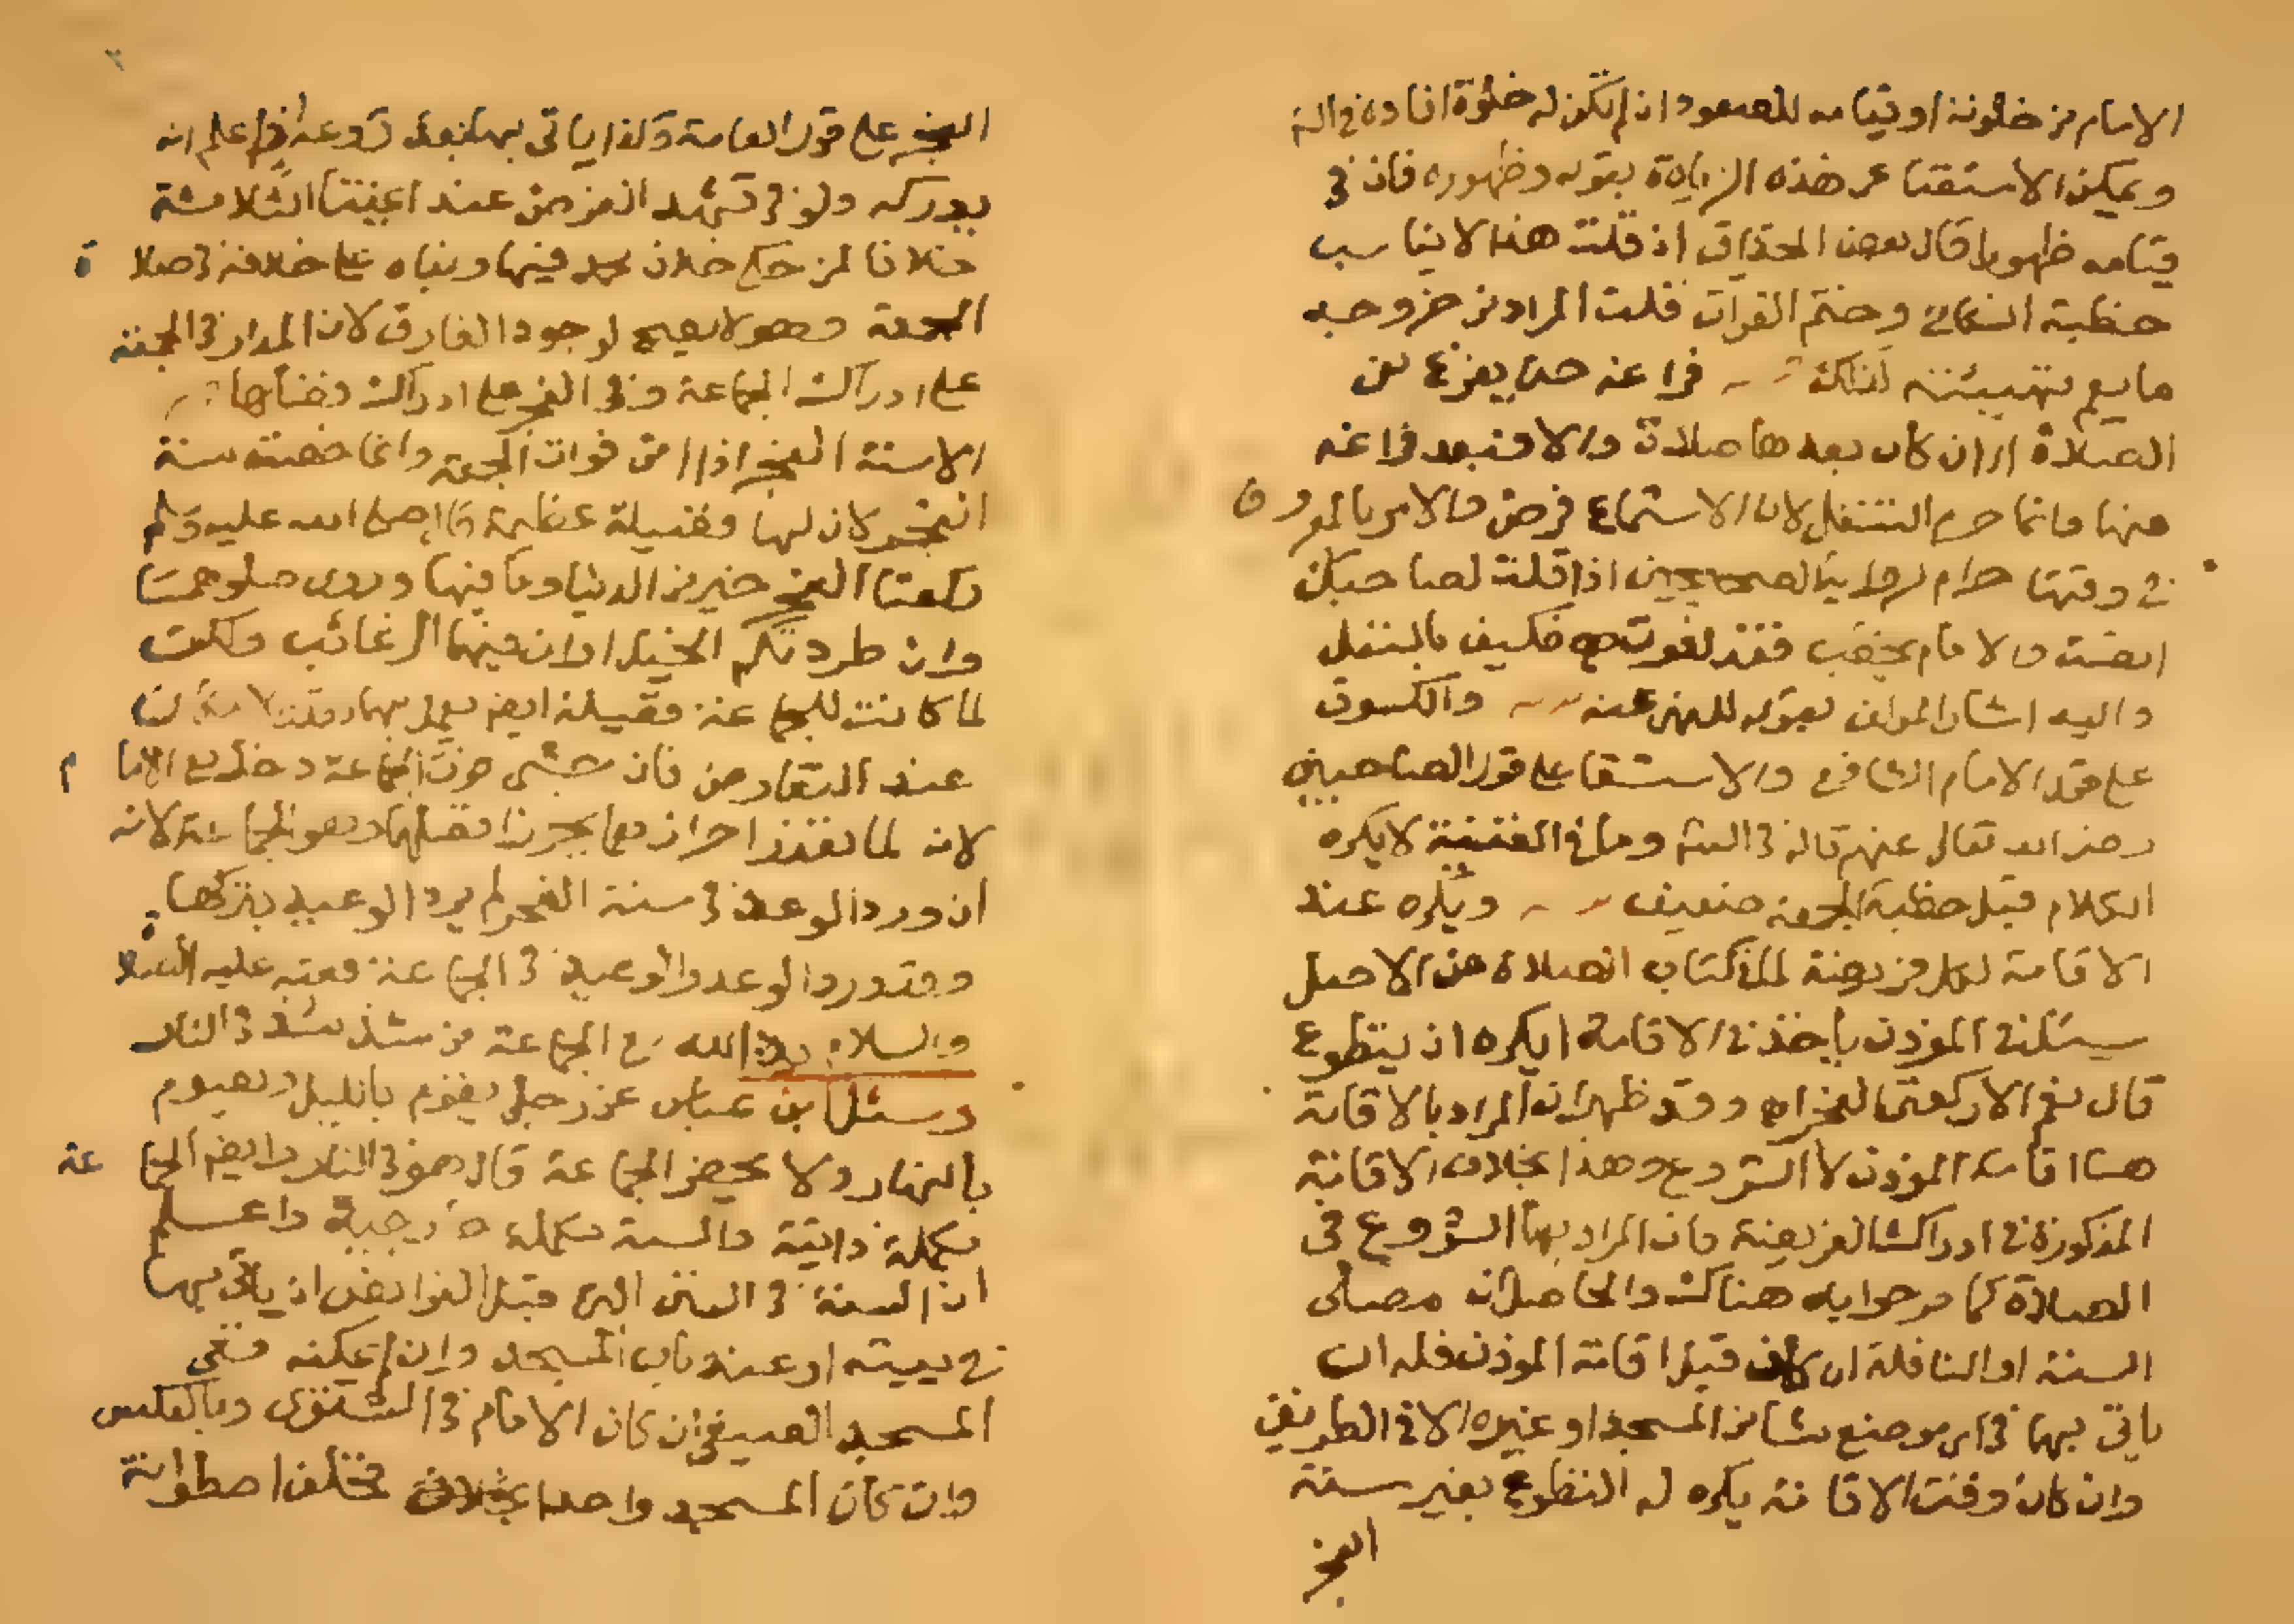 الامام من خلوته او قيامه للصعود ان لم تكن له خلوة افاده في النهر
ويمكن الاستغنا عن هذه الزيادة بقوله وظهوره فان في
قيامه ظهورا قال بعض الحذاق ان قلت هذا لا يناسب
خطبة النكاح وختم القران قلت المراد من خروجه
ما يعم تهيئته لذلك فراغه حتى يفرغ من
الصلاة اي ان كان بعدها صلاة والا فبعد فراغه
منها وانما حرم التنفل لان الاستماع فرض والامر بالمعروف
في وقتها حرام لرواية الصحيحين اذا قلت لصاحبك
انصت والامام يخطب فقد لغوت اه فكيف بالتنفل
واليه اشار المولف بقوله للنهي عنه والكسوف
على قول الامام الشافعي والاستسقا على قول الصاحبين
رضي الله تعالى عنهم قاله في النهر وما في القنية لا يكره
الكلام قبل خطبة الجمعة ضعيف ويكره عند
الاقامة لكل فريضة لما في كتاب الصلاة من الاصل
سئلت عن المؤذن ياخذ في الاقامة ايكره ان يتطوع
قال نعم الا ركعتي الفجر اه وقد ظهر ان المراد بالاقامة
هنا اقامة المؤذن لا الشروع وهذا بخلاف الاقامة
المذكورة في ادراك الفريضة فان المراد بها الشروع في
الصلاة كما صرحوا به هناك والحاصل ان مصلي
السنة او النافلة ان كان قبل اقامة المؤذن فله ان
ياتي بها في اي موضع شا من المسجد او غيره الا في الطريق
وان كان وقت الاقامة يكره له التطوع بغير سنة
الفجر
الفجر على قول العامة وكذا ياتي بها بعد شروعه اذا علم انه
يدركه ولو في تشهد الفرض عند ائمتنا الثلاثة
خلافا لمن حكى خلاف محمد فيها وبناه على خلافه في صلاة
الجمعة وهو لا يصح لوجود الفارق لان المدار في الجمعة
على ادراك الجماعة وفي الفجر على ادراك فضلها
الا سنة الفجر اذا امن فوات الجمعة وانما خصت سنة
الفجر لان لها فضيلة عظيمة قال صلى الله عليه وسلم
ركعتا الفجر خير من الدنيا وما فيها وروى صلوهما
وان طردتكم الخيل او ان فيهما الرغائب ولكن
لما كانت للجماعة فضيلة ايضا يعمل بهما وقتلا مكان
عند التعارض فان خشي فوت الجماعة دخل مع الامام
لانه لما تعذر احرازهما يحرز افضلهما وهو الجماعة لانه
ان ورد الوعد في سنة الفجر لم يرد الوعيد بتركها
وقد ورد الوعد والوعيد في الجماعة فعنه عليه الصلاة
والسلام يد الله مع الجماعة من شذ شذ في النار
وسئل ابن عباس عن رجل يقوم بالليل ويصوم
بالنهار ولا يحضر الجماعة قال هو في النار وايضا الجماعة
مكملة ذاتية والسنة مكملة خارجية واعلم
ان السنة في السنن التي قبل الفرايض ان ياتي بها
في بيته او عند باب المسجد وان لم يمكنه ففي
المسجد الصيفي ان كان الامام في الشتوي وبالعكس
وان كان المسجد واحدا بخلاف مختلف اصطوانة